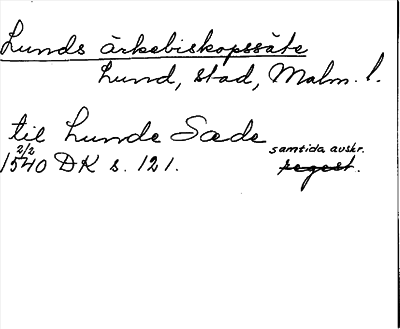 Lunds ärkebiskopssäte
Lund, stad, Malm. l.
til Lunde Sæde
samtida avskr.
2/2
1540 DK s. 121. regest.